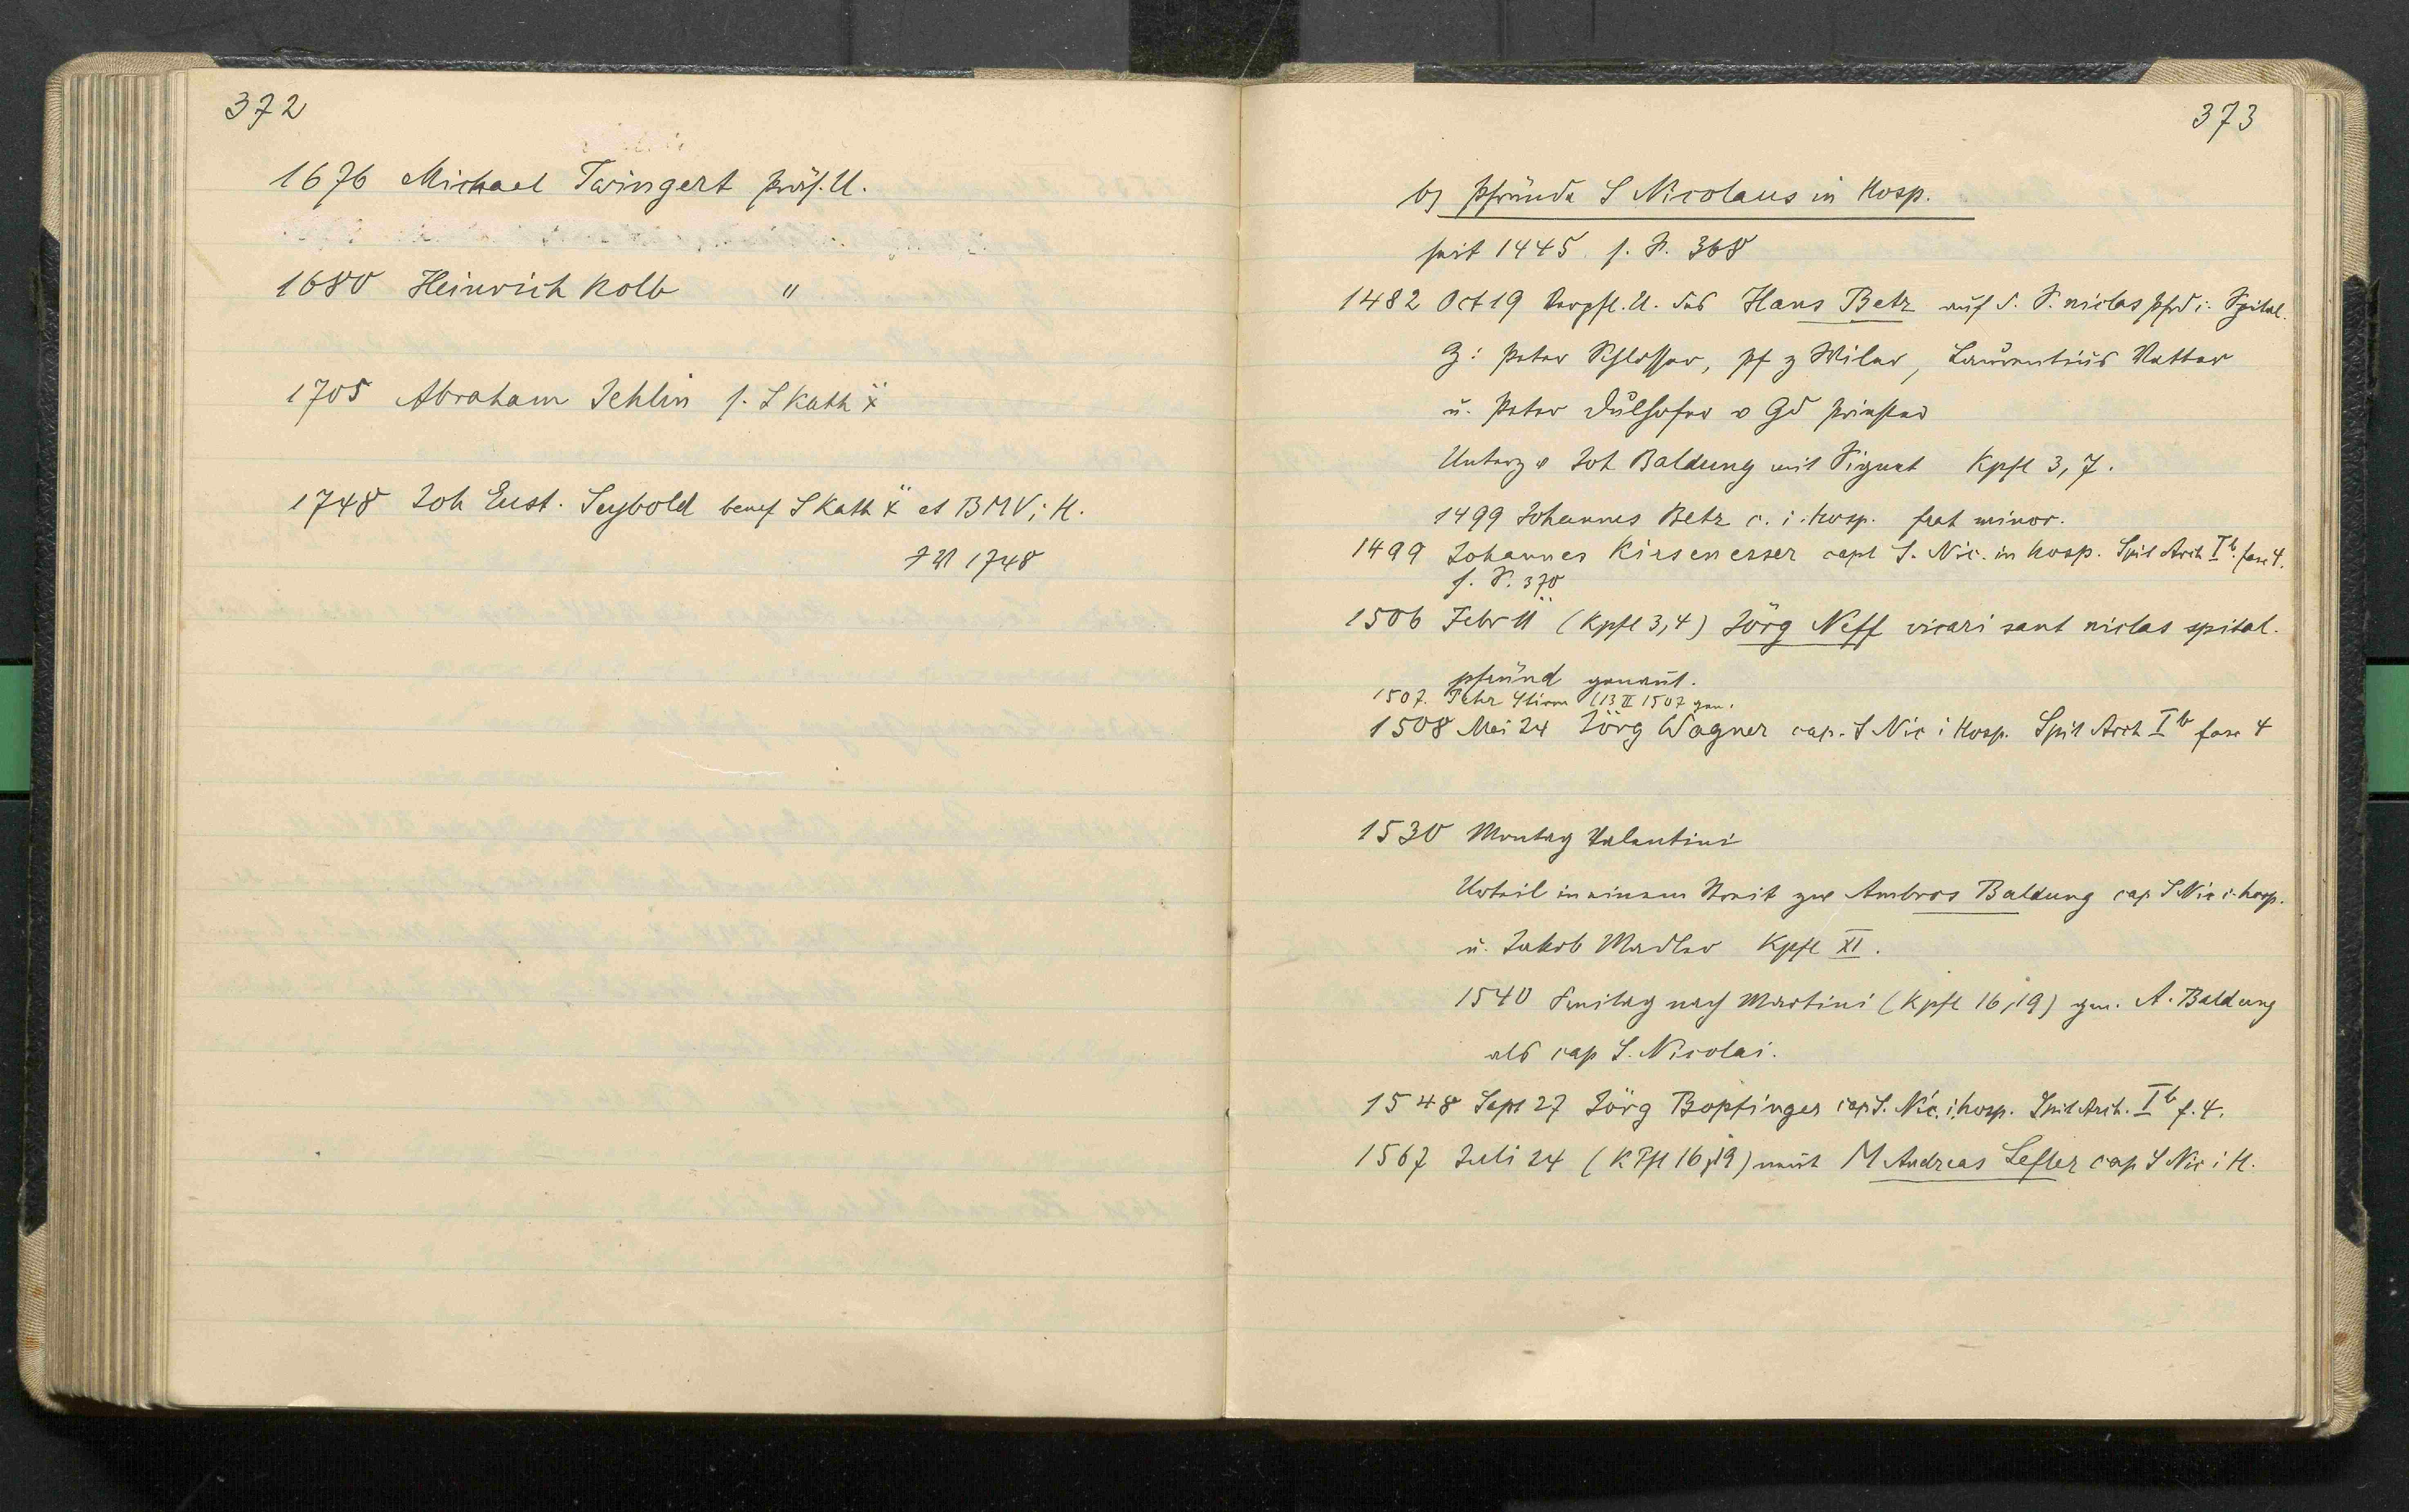 372
1676 Michael Twingert präs. U.
1680 Heinrich Kolb "
1705 Abraham Jehlin s. S Kath
1748 Joh Eust. Seybold benef S Kath et BMV i H.
1748
373
b) Pfründe S Nicolaus in Hosp.
seit 1445 s. S. 368
1482 Oct 19 Verpfl. U. des Hans Betz auf d. S. niclas pfrd i. Spital.
Z: Peter Schlosser, pf z Wiler, Laurentius Vetter
u. Peter v Gd priester
Joh Baldung mit Signet Kpfl 3, 7.
1499 Johannes Betz c. i. hosp. frat minor.
1499 Johannes Kirsenesser capl S. Nic. in hosp. Spit Arch I b. fasc 4.
s. S. 370
1506 Febr 11 (Kpfl 3,4) Jörg Neff vicari sant niclas spital.
pfründ genant.
1507. Peter (13 II 1507 gen.
1508 Mai 24 Jörg Wagner cap. S Nic i Hosp. Spit Arch I b fasc 4
1530 Montag Valentini
Urteil in einem Streit zw Ambros Baldung cap S Nic i. hosp.
u. Jakob Madler Kpfl XI.
1540 Freitag nach Martini (Kpfl 16,19) gen. A. Baldung
als cap S. Nicolai.
1548 Sept 27 Jörg Bopfinger cap S. Nic. i. hosp. Spit Arch. I b f. 4.
1567 Juli 24 (K Pfl 16,19) M Andreas Lefler cap S Nic i H.